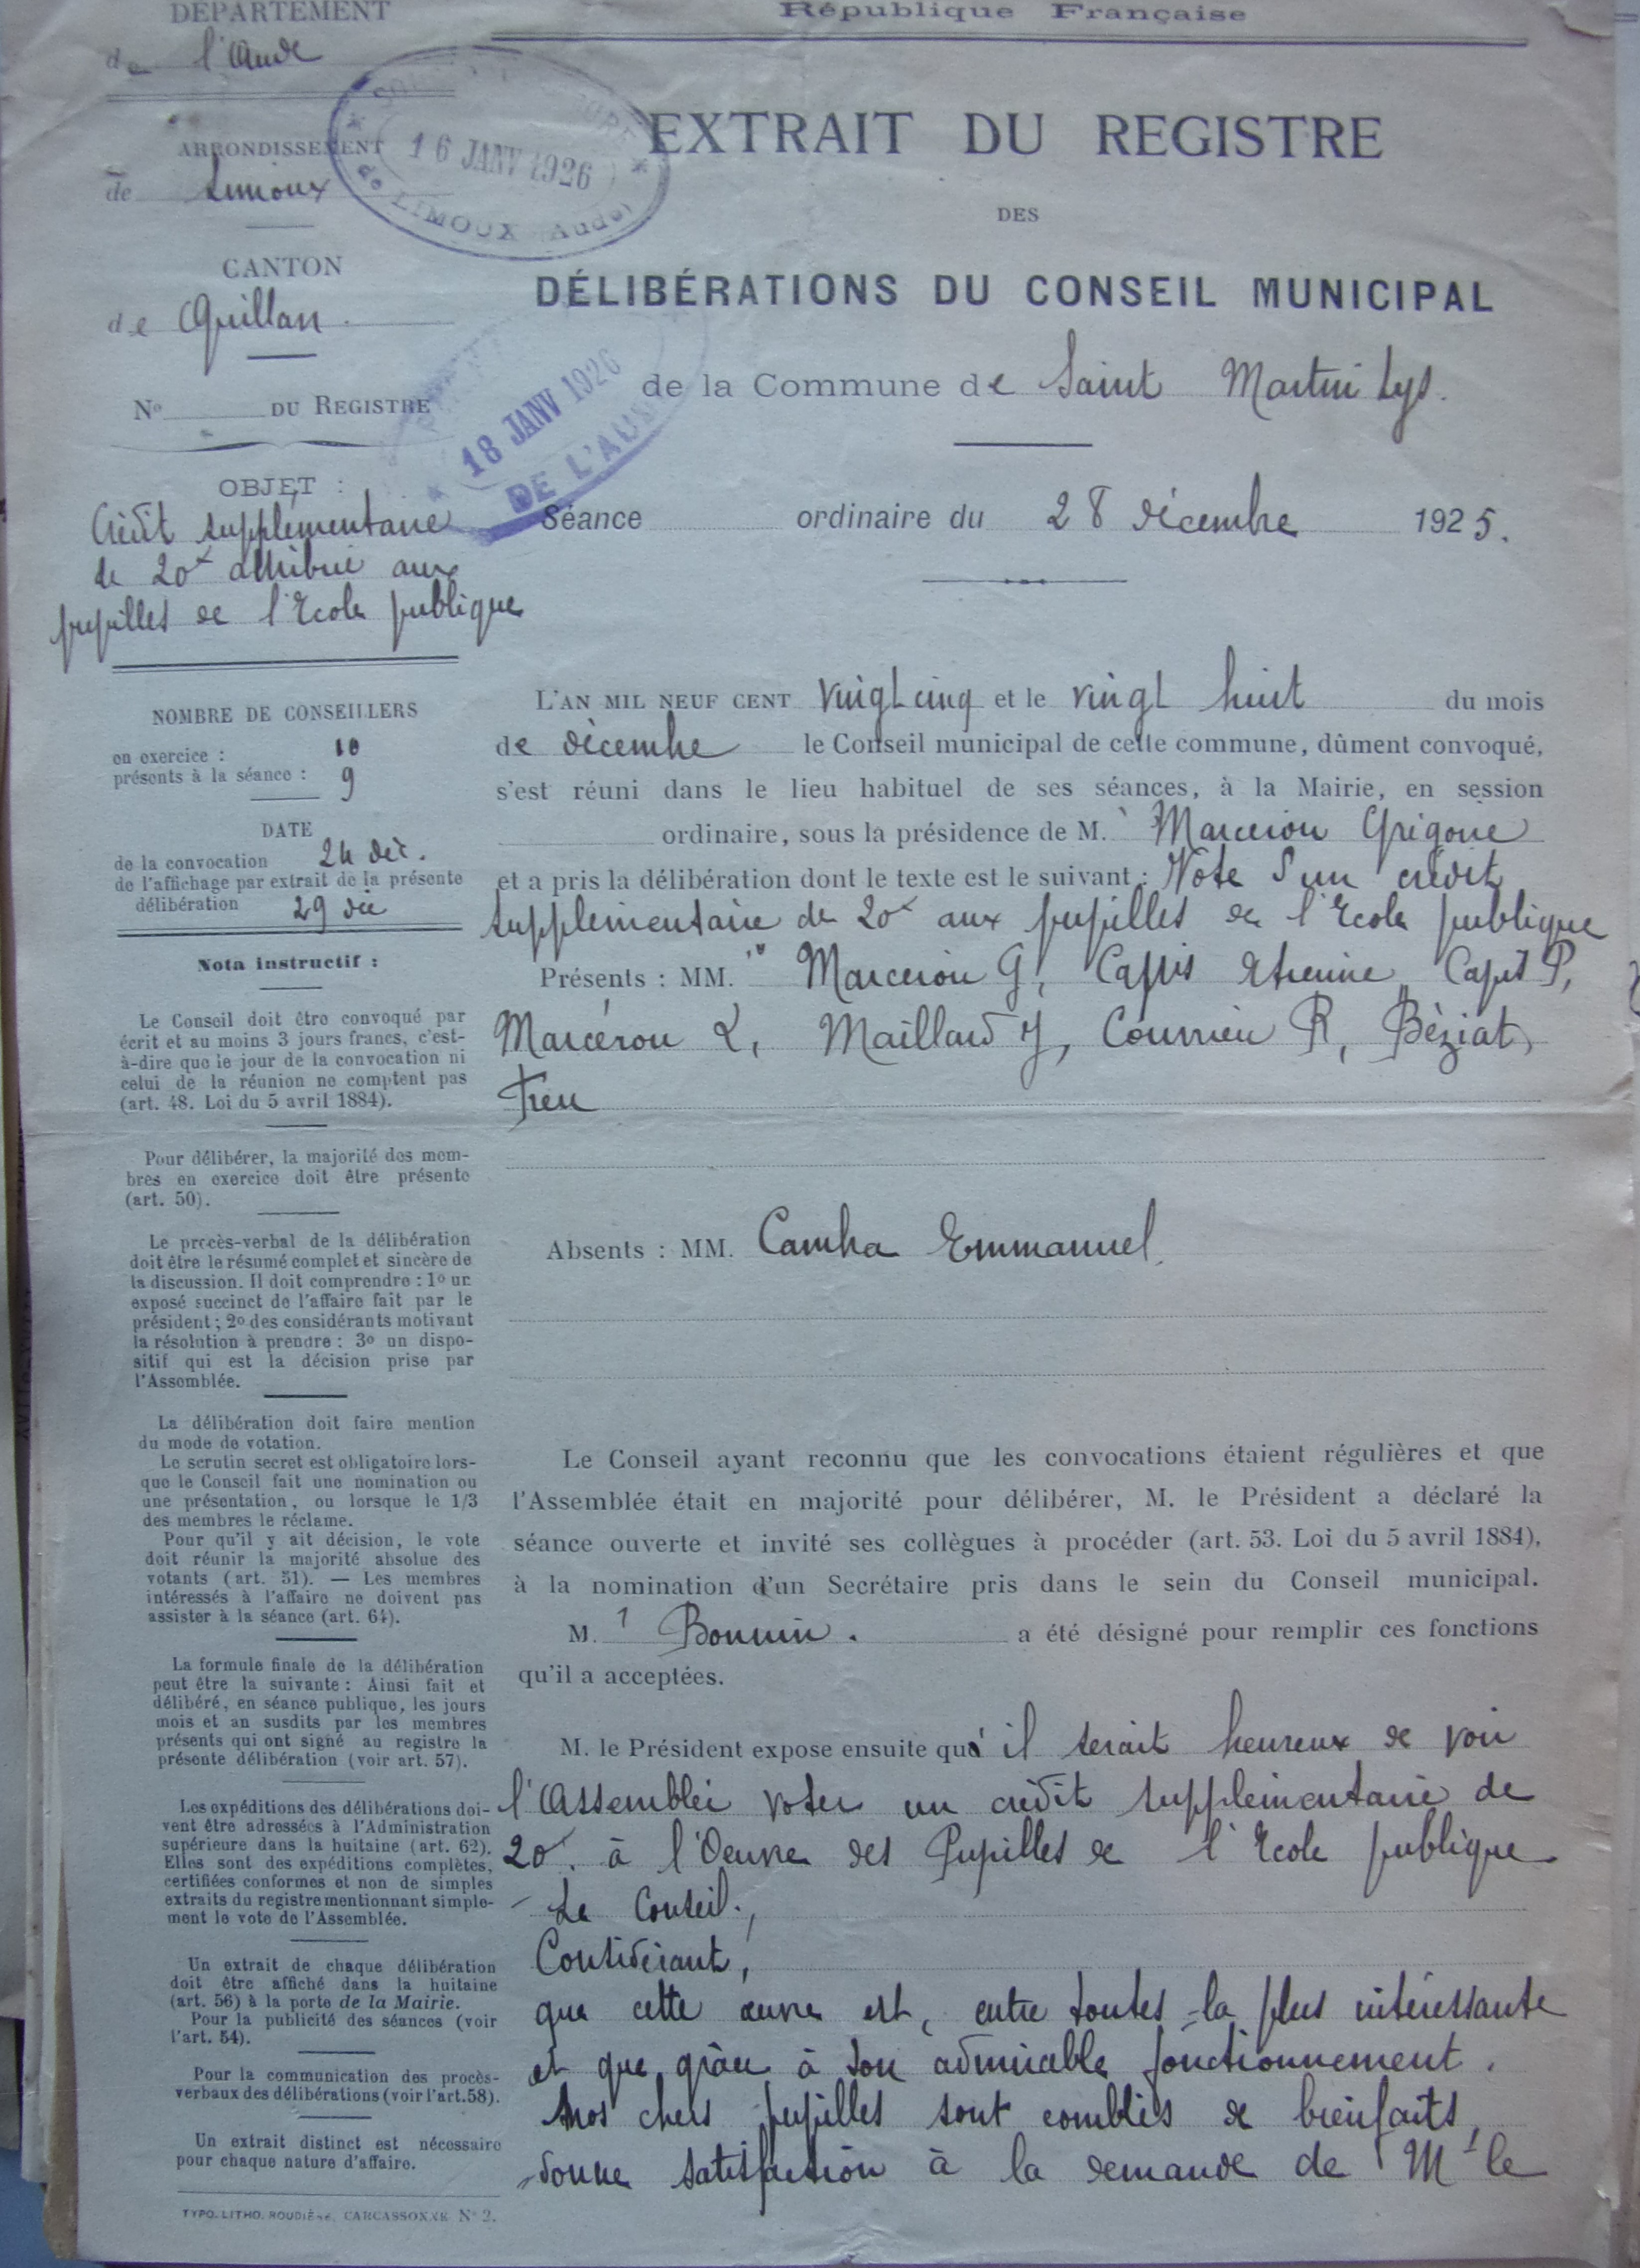 DÉPARTEMENT
de l'Aude
République Française
16 JANV 1926
de LIMOUX (Aude)
ARRONDISSEMENT
de Limoux
CANTON
de Quillan.
No DU REGISTRE
18 JANV 1926
DE L'AUDE
OBJET :
Crédit supplémentaire
de 20f attribué aux
pupilles de l'Ecole publique
NOMBRE DE CONSEILLERS
en exercice : 10
présents à la séance : 9
DATE
de la convocation 24 déc.
de l'affichage par extrait de la présente
délibération 29 déc
Nota instructif :
Le Conseil doit être convoqué par
écrit et au moins 3 jours francs, c'est-
à-dire que le jour de la convocation ni
celui de la réunion ne comptent pas
(art. 48. Loi du 5 avril 1884).
Pour délibérer, la majorité des mem-
bres en exercice doit être présente
(art. 50).
Le procès-verbal de la délibération
doit être le résumé complet et sincère de
la discussion. Il doit comprendre : 1o un
exposé succinct de l'affaire fait par le
président ; 2o des considérants motivant
la résolution à prendre : 3o un dispo-
sitif qui est la décision prise par
l'Assemblée.
La délibération doit faire mention
du mode de votation.
Le scrutin secret est obligatoire lors-
que le Conseil fait une nomination ou
une présentation, ou lorsque le 1/3
des membres le réclame.
Pour qu'il y ait décision, le vote
doit réunir la majorité absolue des
votants (art. 51). — Les membres
intéressés à l'affaire ne doivent pas
assister à la séance (art. 64).
La formule finale de la délibération
peut être la suivante : Ainsi fait et
délibéré, en séance publique, les jours
mois et an susdits par les membres
présents qui ont signé au registre la
présente délibération (voir art. 57).
Les expéditions des délibérations doi-
vent être adressées à l'Administration
supérieure dans la huitaine (art. 62).
Elles sont des expéditions complètes,
certifiées conformes et non de simples
extraits du registre mentionnant simple-
ment le vote de l'Assemblée.
Un extrait de chaque délibération
doit être affiché dans la huitaine
(art. 56) à la porte de la Mairie.
Pour la publicité des séances (voir
l'art. 54).
Pour la communication des procès-
verbaux des délibérations (voir l'art. 58).
Un extrait distinct est nécessaire
pour chaque nature d'affaire.
TYPO.-LITHO. ROUDIÈRE, CARCASSONNE No 2.
EXTRAIT DU REGISTRE
DES
DÉLIBÉRATIONS DU CONSEIL MUNICIPAL
de la Commune de Saint Martin Lys.
Séance ordinaire du 28 décembre 1925.
L'AN MIL NEUF CENT vingt cinq et le vingt huit du mois
de décembre le Conseil municipal de cette commune, dûment convoqué,
s'est réuni dans le lieu habituel de ses séances, à la Mairie, en session
ordinaire, sous la présidence de M. Marceron Grégoire
et a pris la délibération dont le texte est le suivant : Vote d'un crédit
supplémentaire de 20f aux pupilles de l'Ecole publique
Présents : MM. Marceron G, Etienne P,
Marceron L, Maillard J, Courrieu R, Béziat,
Absents : MM. Emmanuel.
Le Conseil ayant reconnu que les convocations étaient régulières et que
l'Assemblée était en majorité pour délibérer, M. le Président a déclaré la
séance ouverte et invité ses collègues à procéder (art. 53. Loi du 5 avril 1884),
à la nomination d'un Secrétaire pris dans le sein du Conseil municipal.
M. a été désigné pour remplir ces fonctions
qu'il a acceptées.
M. le Président expose ensuite qu'il serait heureux de voir
l'Assemblée voter un crédit supplémentaire de
20f. à l'Oeuvre des Pupilles de l'Ecole publique
- Le Conseil.,
Considérant,
que cette œuvre est, entre toutes la plus intéressante
et que grâce à son admirable fonctionnement,
nos chers pupilles sont comblés de bienfaits,
donne satisfaction à la demande de Mr le